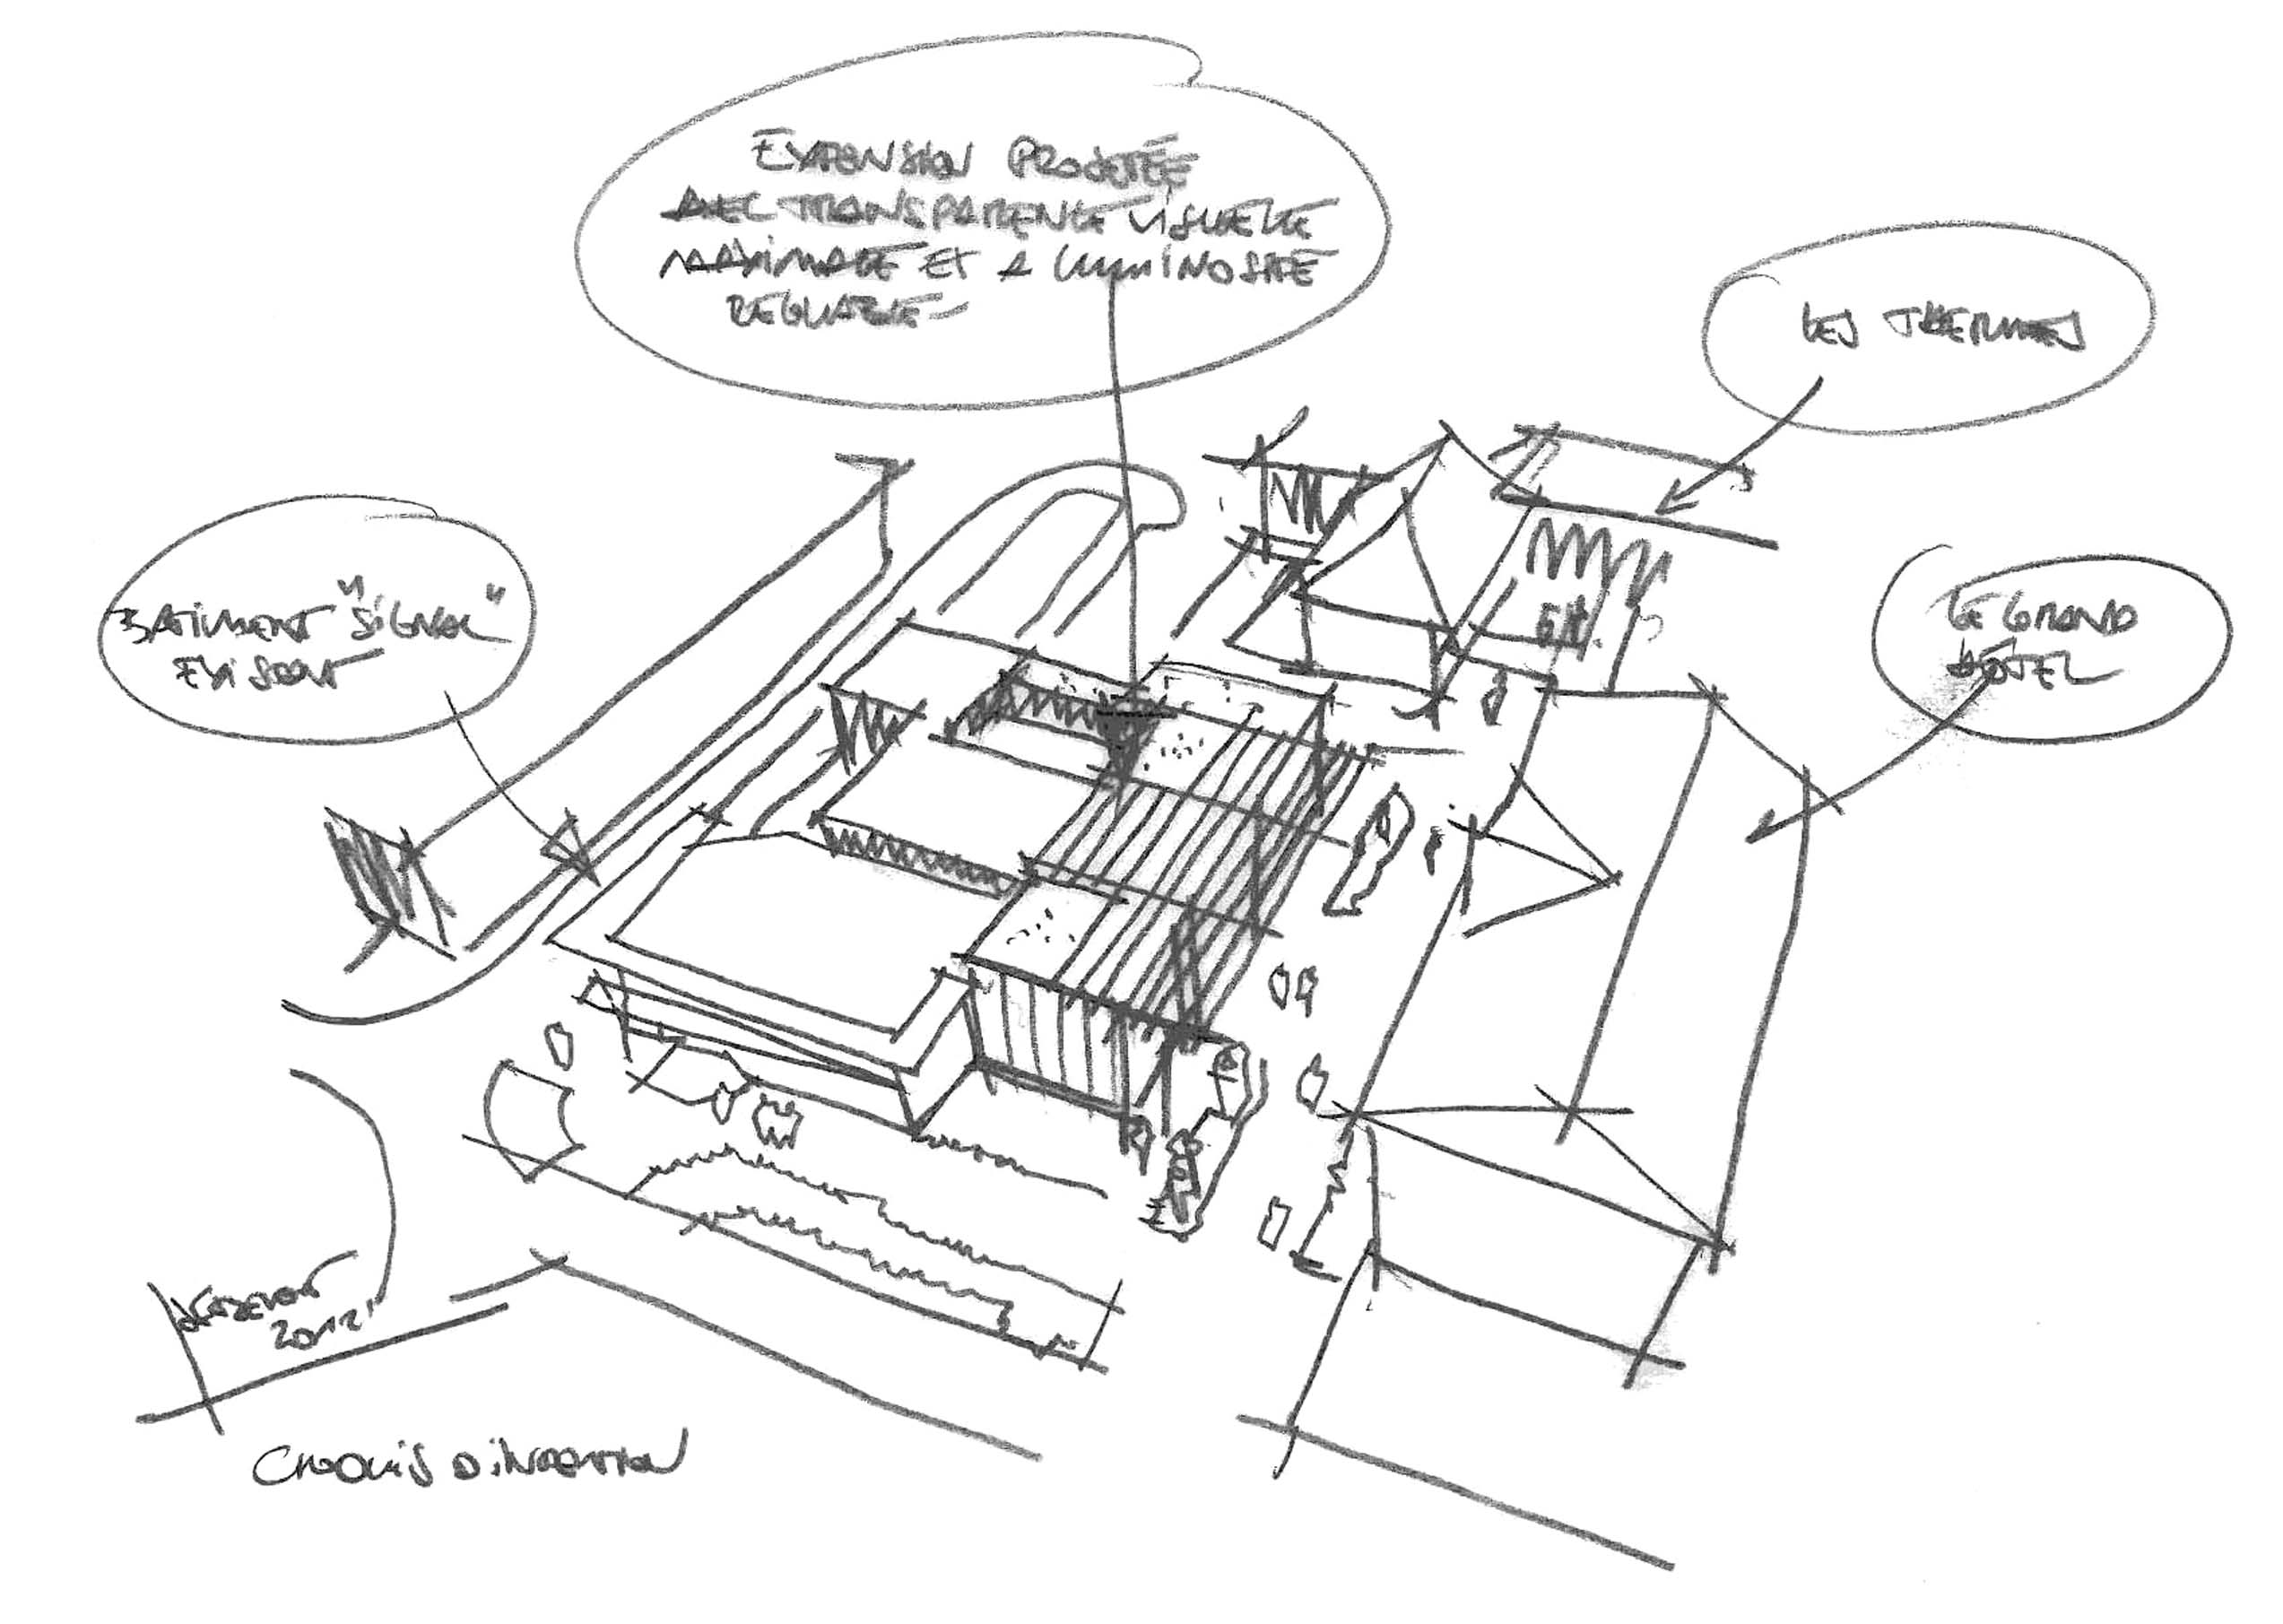 EXTENSION PROJETÉE
AVEC TRANSPARENCE VISUELLE
MAXIMALE ET A LUMINOSITÉ
REGLABLE
LES THERMES
BATIMENT "SIGNAL"
EXISTANT
LE GRAND
HÔTEL
2012
CROQUIS D'INSERTION